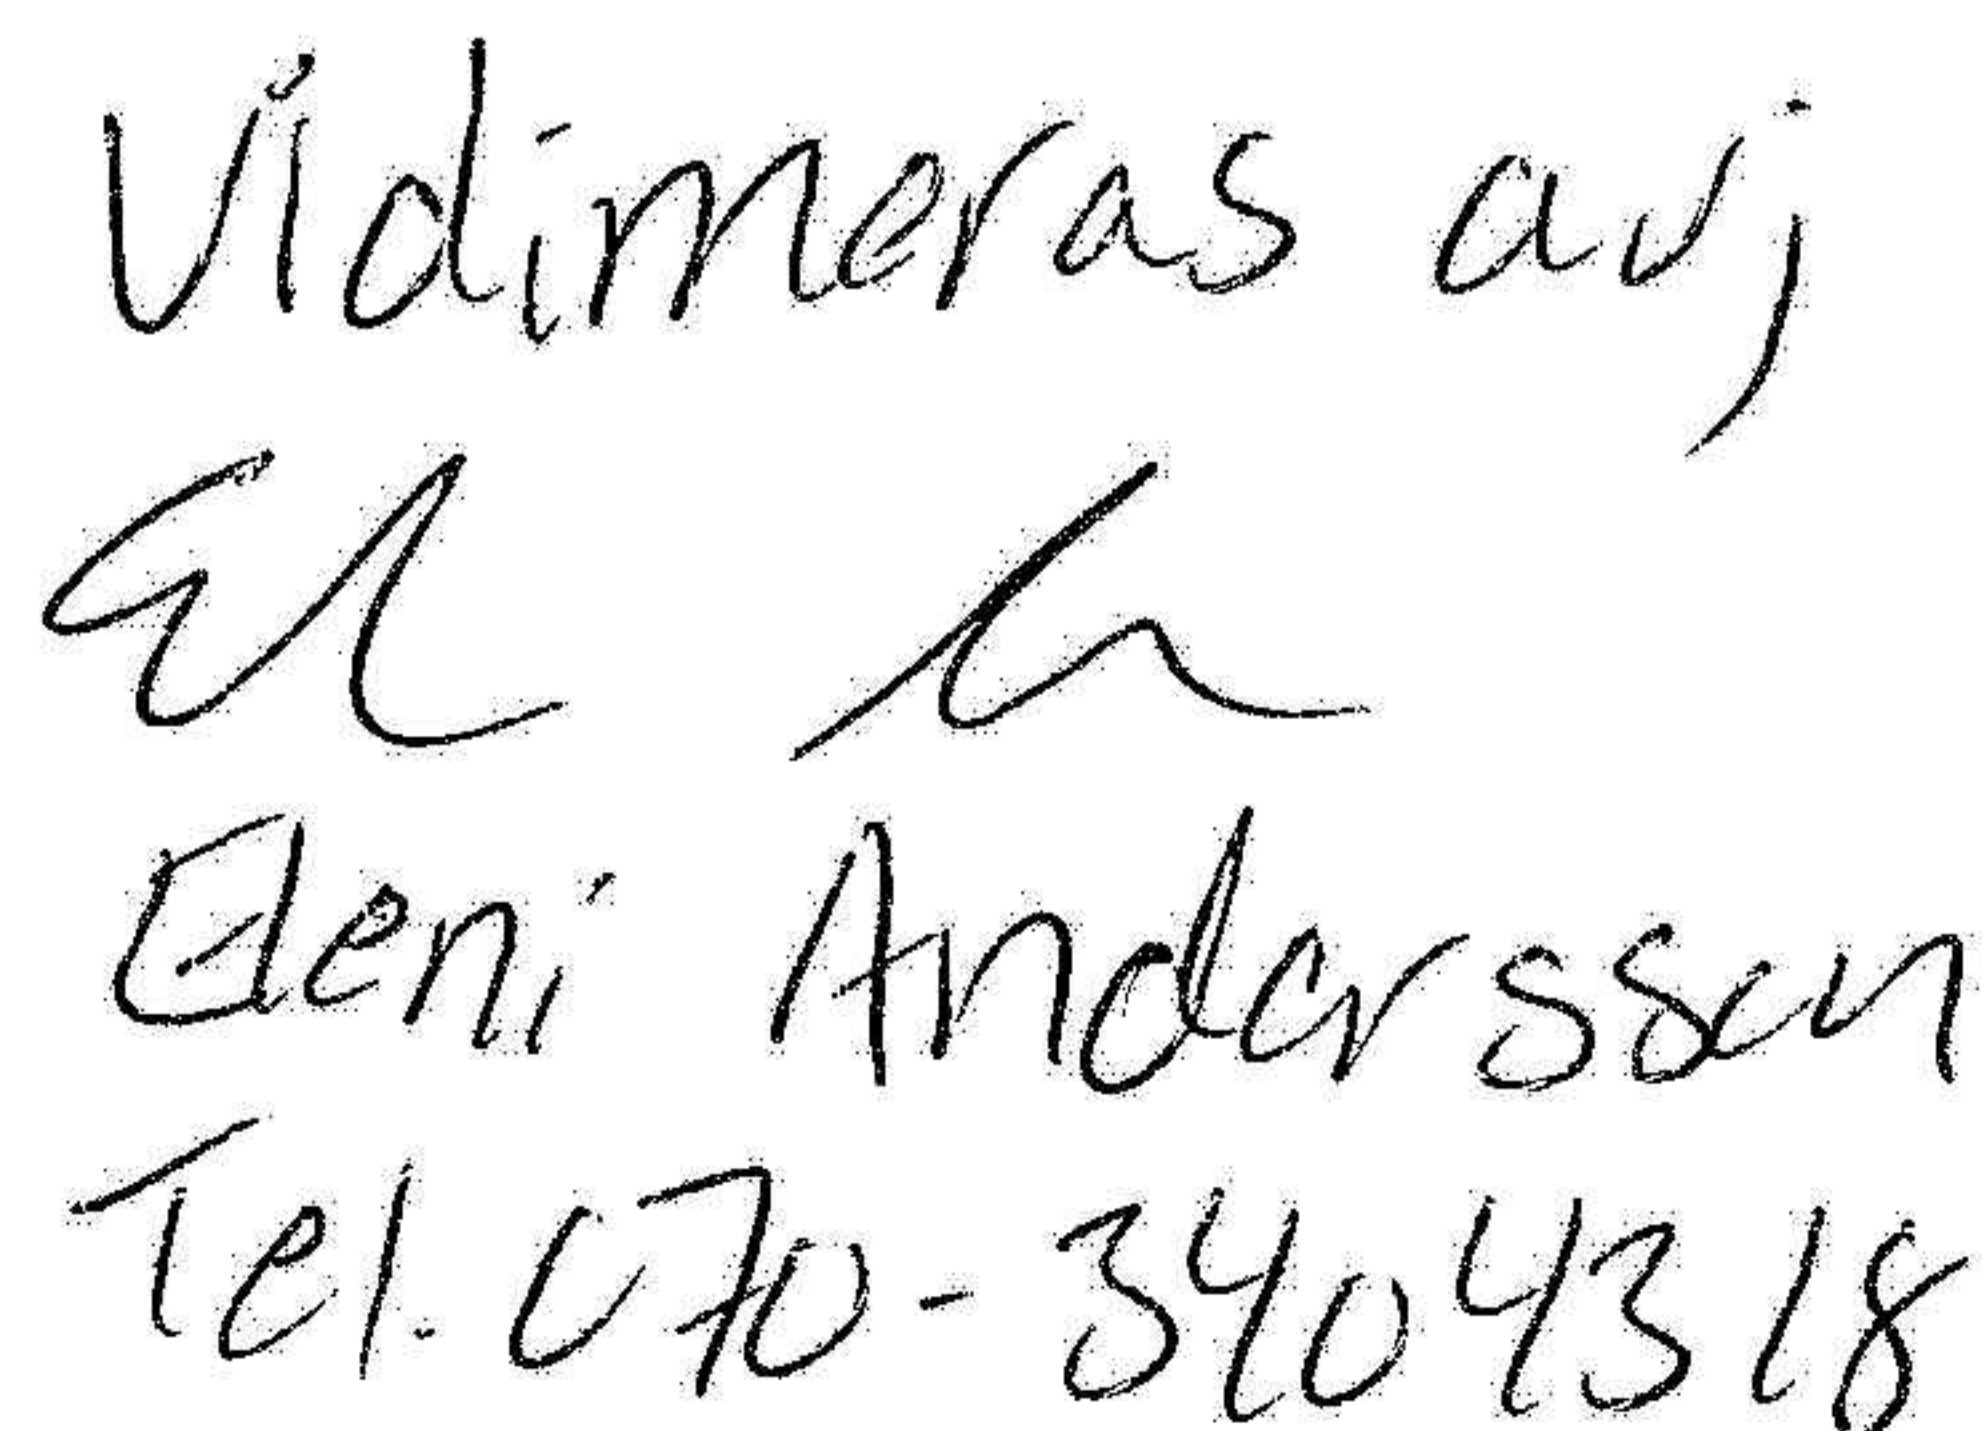 Vidimeras av;
Eleni Andersson
Tel. 070-3404318